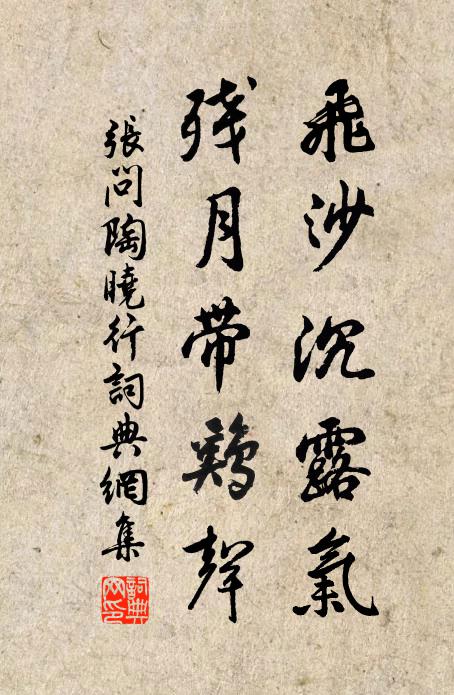 飛沙沉露氣
殘月帶鷄聲
張問陶曉行詞典網集
詞典網印